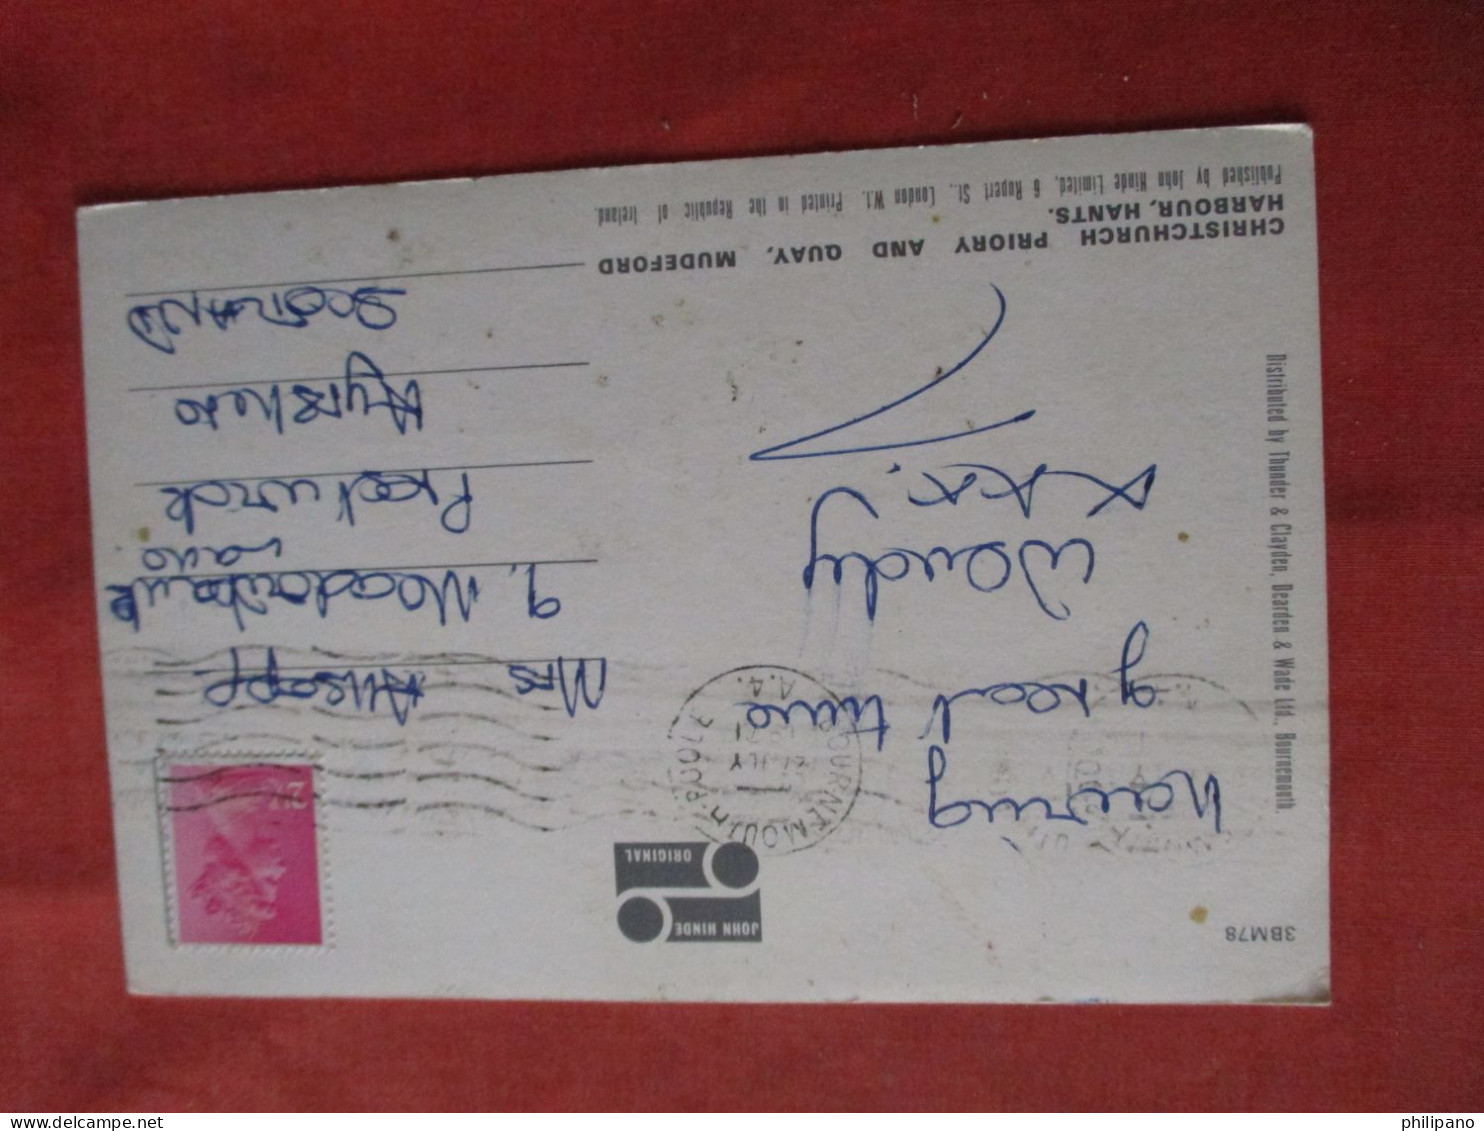 3BM78
JOHN HINDE
ORIGINAL
2½P
BOURNEMOUTH-POOLE
JLY
1971
A.4.
having
great time
Wendy
xxx.
Mrs Allsopp
9, Meadowbank
Lane
Prestwick
Ayrshire
SCOTLAND
Distributed by Thunder & Clayden, Dearden & Wade Ltd., Bournemouth.
CHRISTCHURCH PRIORY AND QUAY, MUDEFORD
HARBOUR, HANTS.
Published by John Hinde Limited, 6 Rupert St., London W.1. Printed in the Republic of Ireland.
philipano